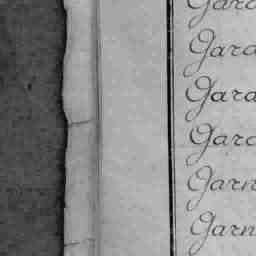 Gard
Gara
Gara
Gard
Garn
Garn